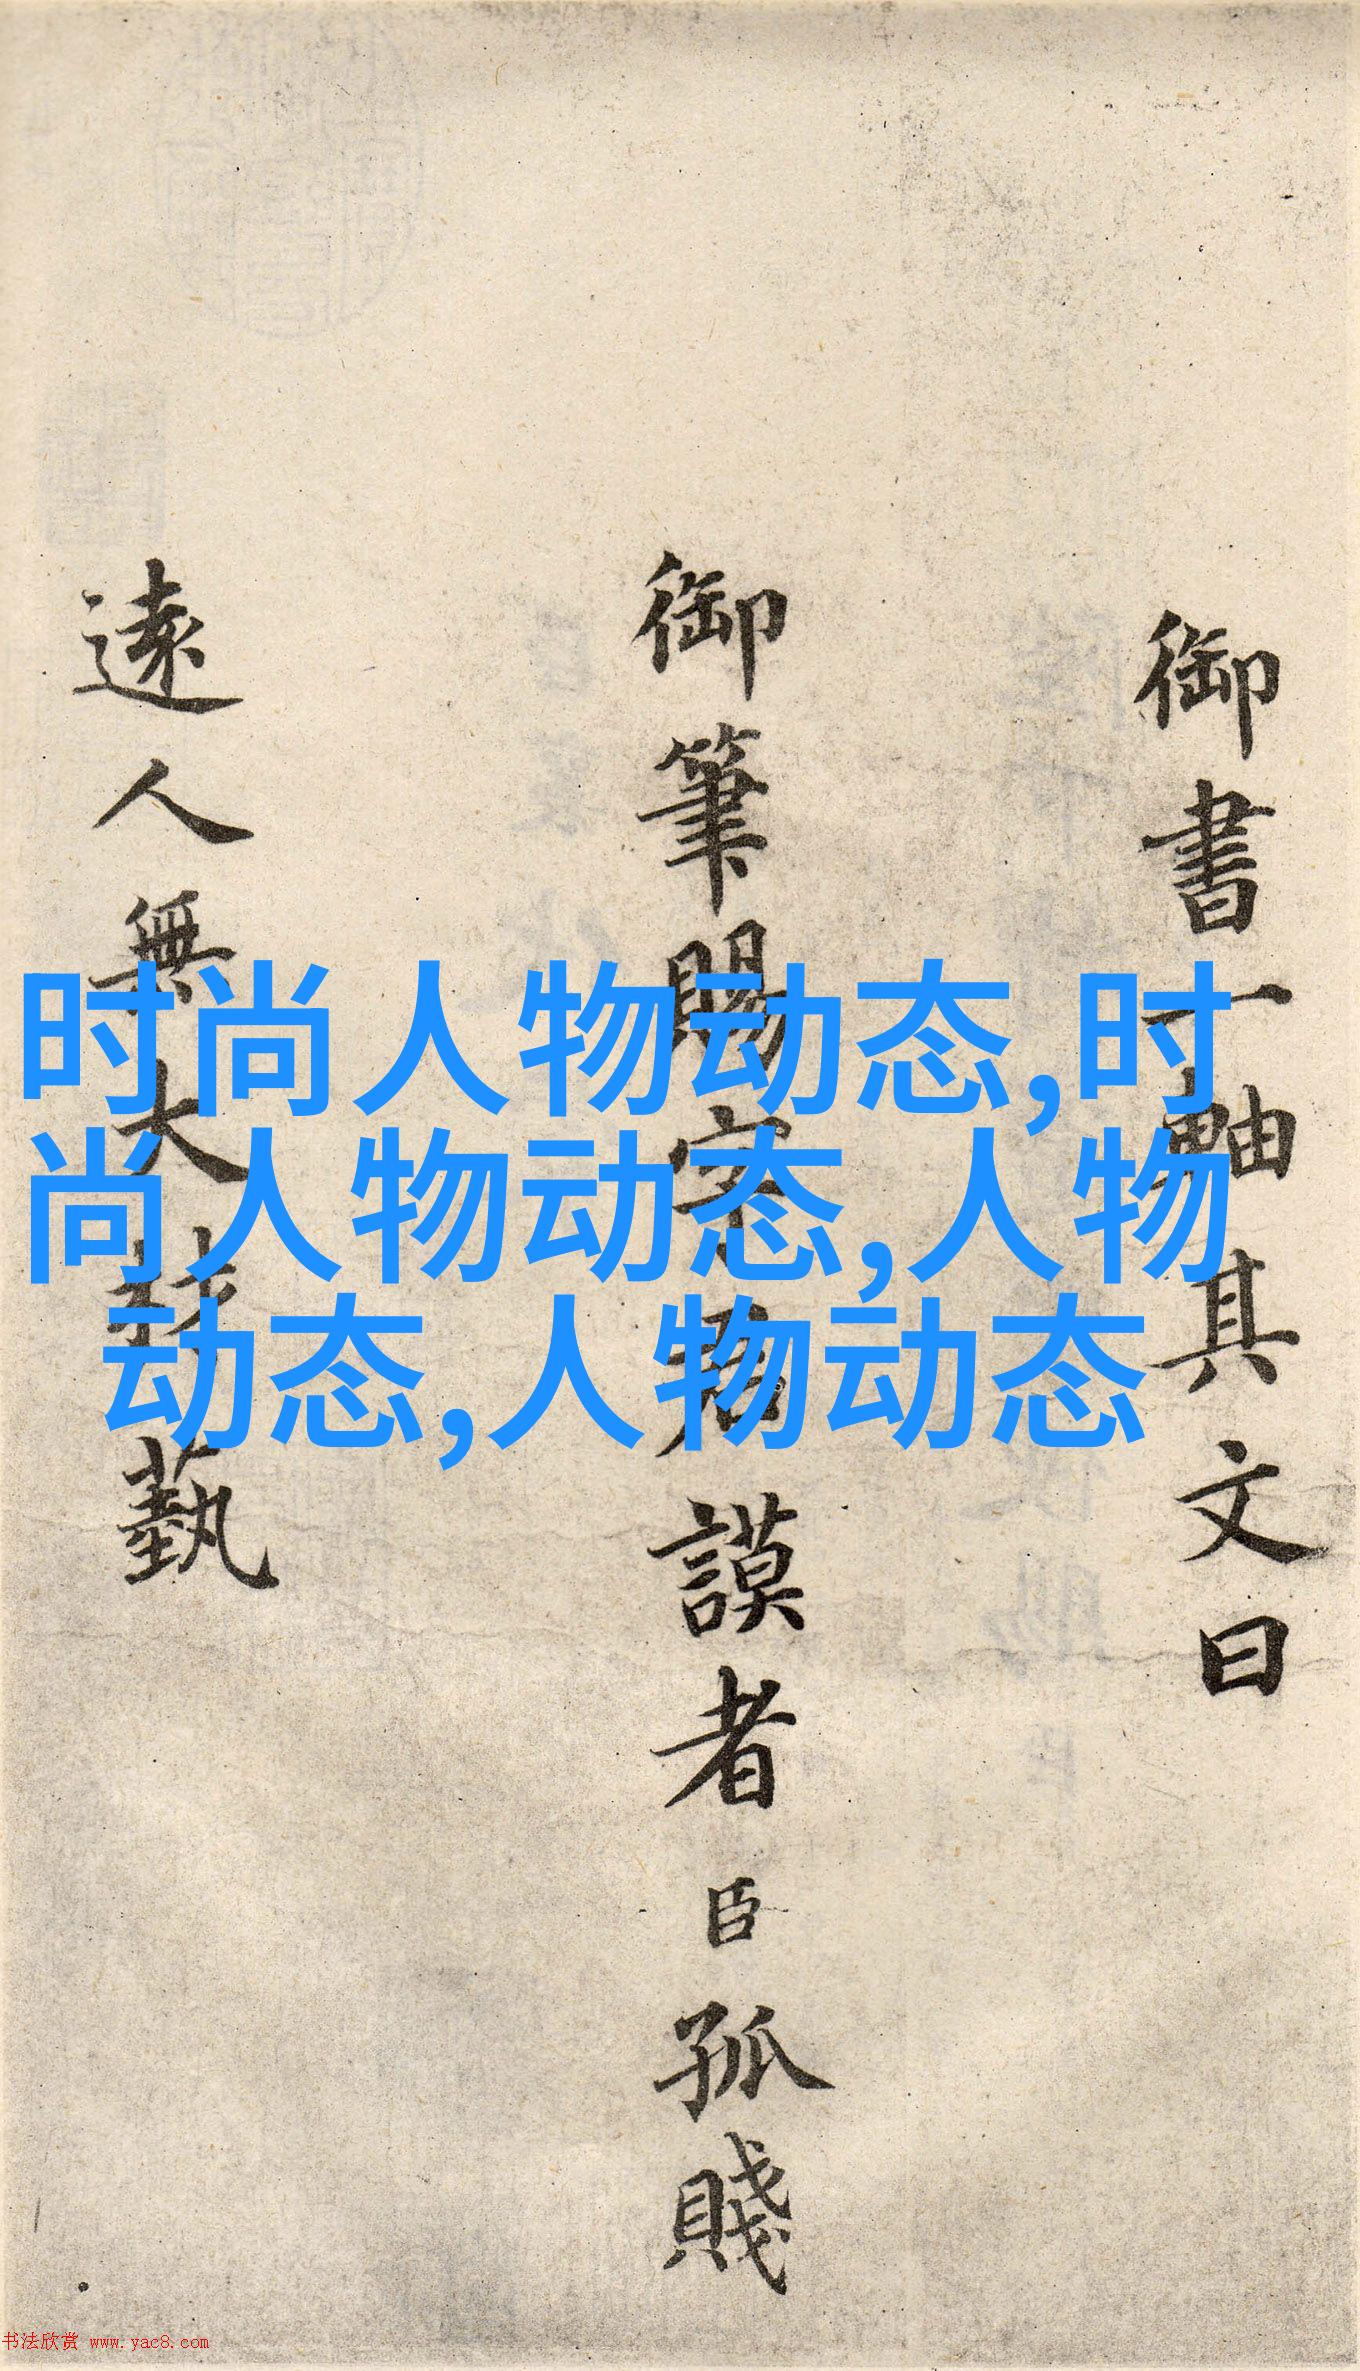 御書一軸其文曰
御筆賜字君謨者臣孤賤
遠人無大材藝
时尚人物动态,时
尚人物动态,人物
动态,人物动态
书法欣赏 www.yac8.com